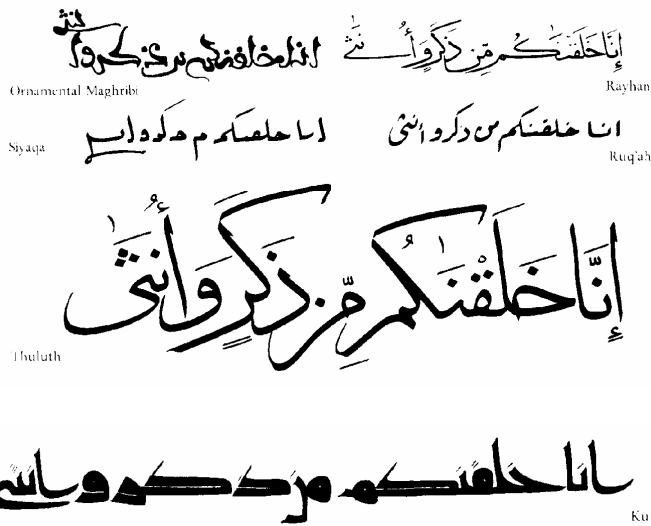 إنا خلقنكم من ذكر و أنثى
Ornamental Maghribi
إِنَّا خَلَقْنَٰكُم مِّن ذَكَرٍ وَأُنثَىٰ
Rayhan
انا خلقنكم من دكر و انثى
Siyaqa
انا خلقنكم من ذكر و أنثى
Ruq'ah
إِنَّا خَلَقْنَٰكُمْ مِّن ذَكَرٍ وَأُنثَىٰ
Thuluth
انا خلقنكم من دكر و انثى
Ku